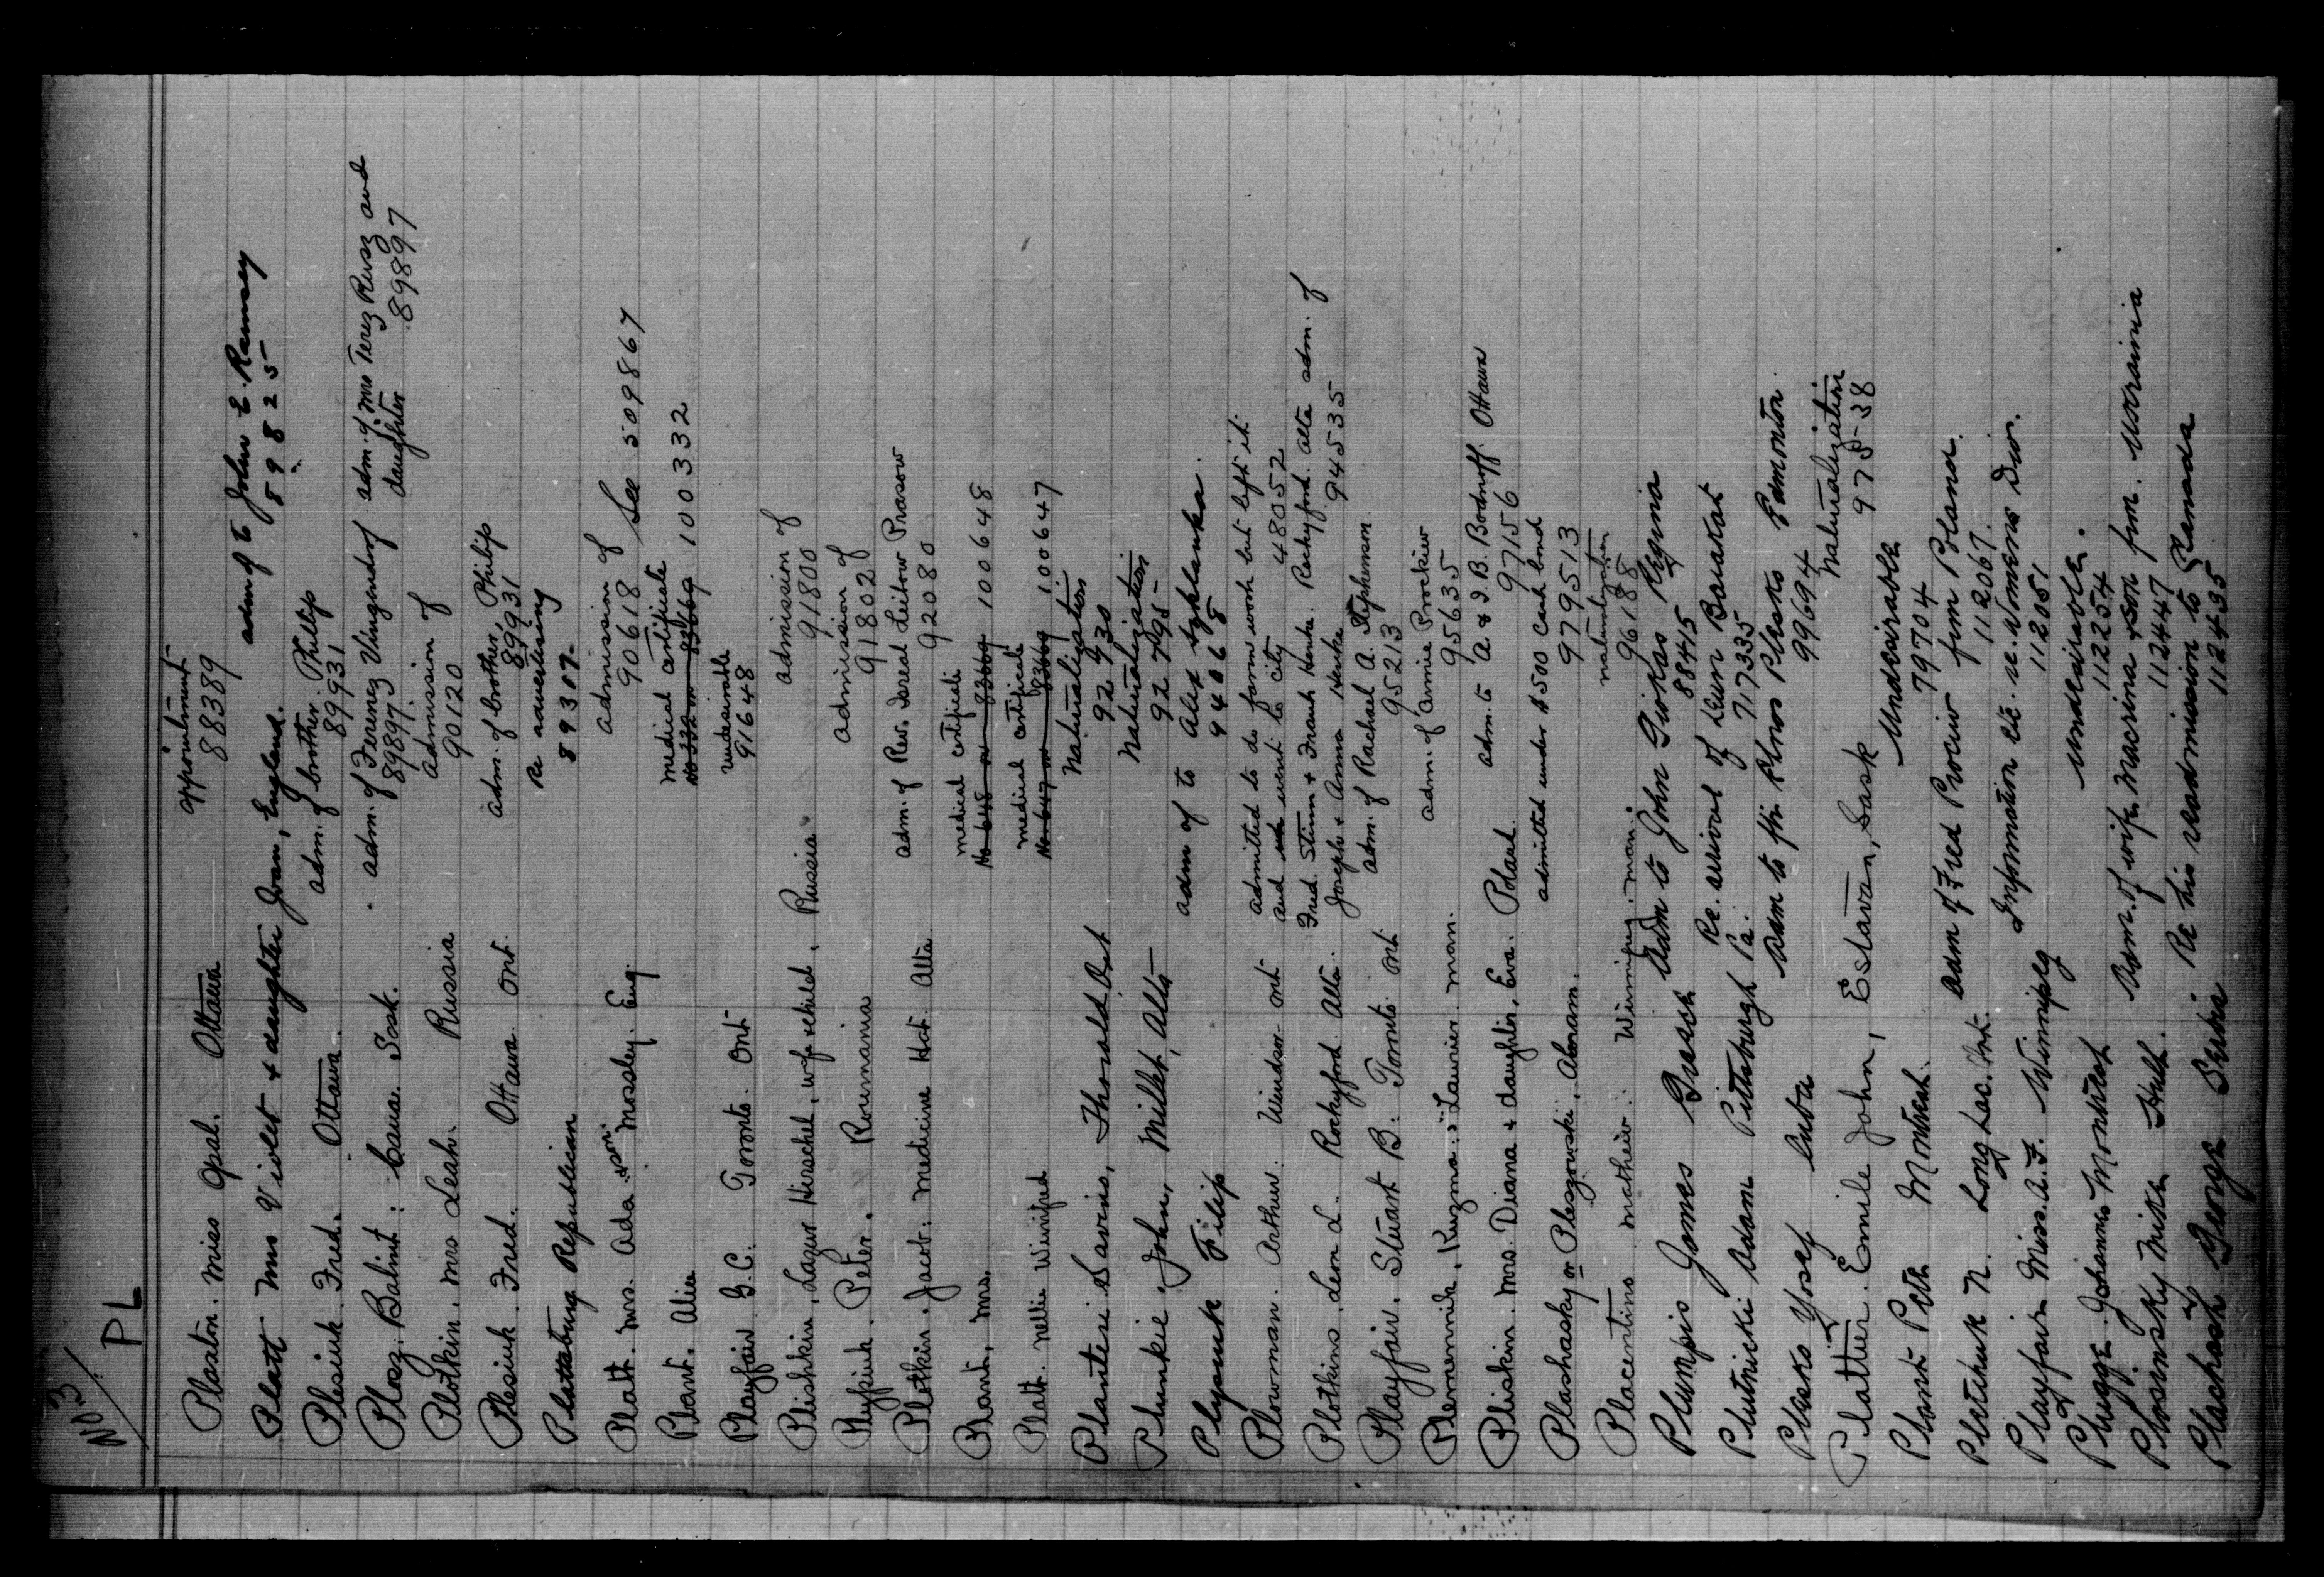 No 3
PL
Plaston. Miss Opal. Ottawa appointment
88389
Platt Mrs Violet & daughter Joan, England. adm of to John E. Ramsey
89825
Plesiuk. Fred. Ottawa. adm. of brother. Phillip
89931
Plosz. Balint. Sask. adm. of Ferencz adm. of Mrs Terez Rusz and
89897. daughter 89897
Plotkin. Mrs Leah. Russia admission of
90120
Plesiuk. Fred. Ottawa Ont. adm. of brother, Philip
89931
Plattsburg Republican Re advertising
89307
Platt. Mrs. Ada & son. Mossley. Eng. admission of
90618 See 509867
Plant. Alice medical certificate
No 332 on 83669 100332
Playfair G.C. Toronto. Ont undesirable
91648
Plishkin, Lazur Herschel, wife & child, Russia. admission of
91800
Plypiuk. Peter. Roumania admission of
91802
Plotkin. Jacob. Medicine Hat. Alta. adm. of Rev. Isreal Leibow Prosow
92080
Plant, Mrs. medical certificate
No 648 on 83669 100648
Platt. Nellie Winifred medical certificate
No 647 on 83669 100647
Planteri Savino, Thorold, Ont Naturalization
92430
Plunkie John, Millet, Alta Naturalization
92795
Plysiuk Filip adm of to Alex
94068
Plowman. Arthur. Windsor Ont admitted to do farm work but left it
and went to city 48052
Plotkins. Lem L. Rockyford. Alta. Fred. Stimm & Frank Hanke. Rockyford. Alta adm. of
Joseph & Anna Hanke 945535
Playfair. Stuart B. Toronto. Ont adm. of Rachael A. Stephenson.
95213
Plemennik, Kuzma. Laurier. Man. adm. of Annie Prockiw
95635
Pliskin. Mrs. Diana & daughter, Eva. Poland. adm. to A. & I. B. Bodnoff. Ottawa
97156
Plashasky or Pleszowski, Abraham. admitted under $500 cash bond
979513
Placentino Mathew. Winnipeg. Man. naturalization
96188
Plumpis James Greece adm to John Giokas Regina
88415
Plutnicki Adam Pittsburgh Pa. Re. arrival of
717335
Plesko Yosef Cuba adm to fthr. Plesko Edmonton
99694
Platter. Emile John, Estavan, Sask Naturalization
975-38
Plant Pete Montreal. Undesirable
79704
Pletchuk N. Long Lac. Ont. adm of Fred Prociw from Poland.
112067.
Playfair Miss. A.F. Winnipeg Information etc. re. Womens Divn.
112051
Plugge. Johannes Montreal Undesirable.
112254
Plosinsky Mike Hull. adm. of wife Macrina & son from. Ukrainia
112447
Plachash George Serbia Re his readmission to Canada
112435